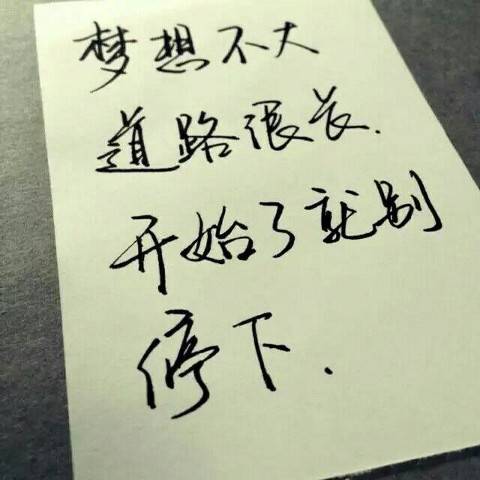 梦想不大
道路很长.
开始了就别
停下.